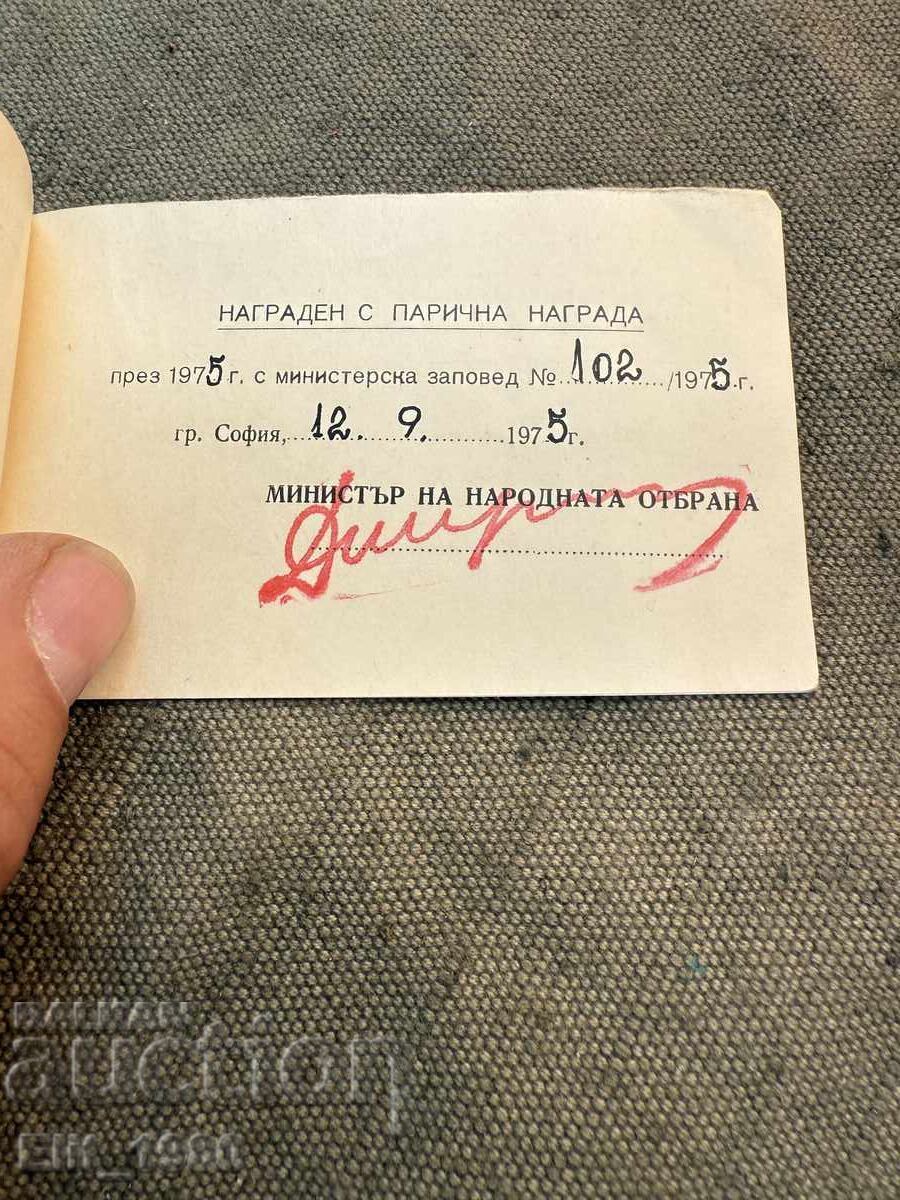 НАГРАДЕН С ПАРИЧНА НАГРАДА
през 1975 г. с министерска заповед № 102 /1975 г.
гр. София, 12. 9. 1975 г.
МИНИСТЪР НА НАРОДНАТА ОТБРАНА
BALKAN
auction
Elit_1980